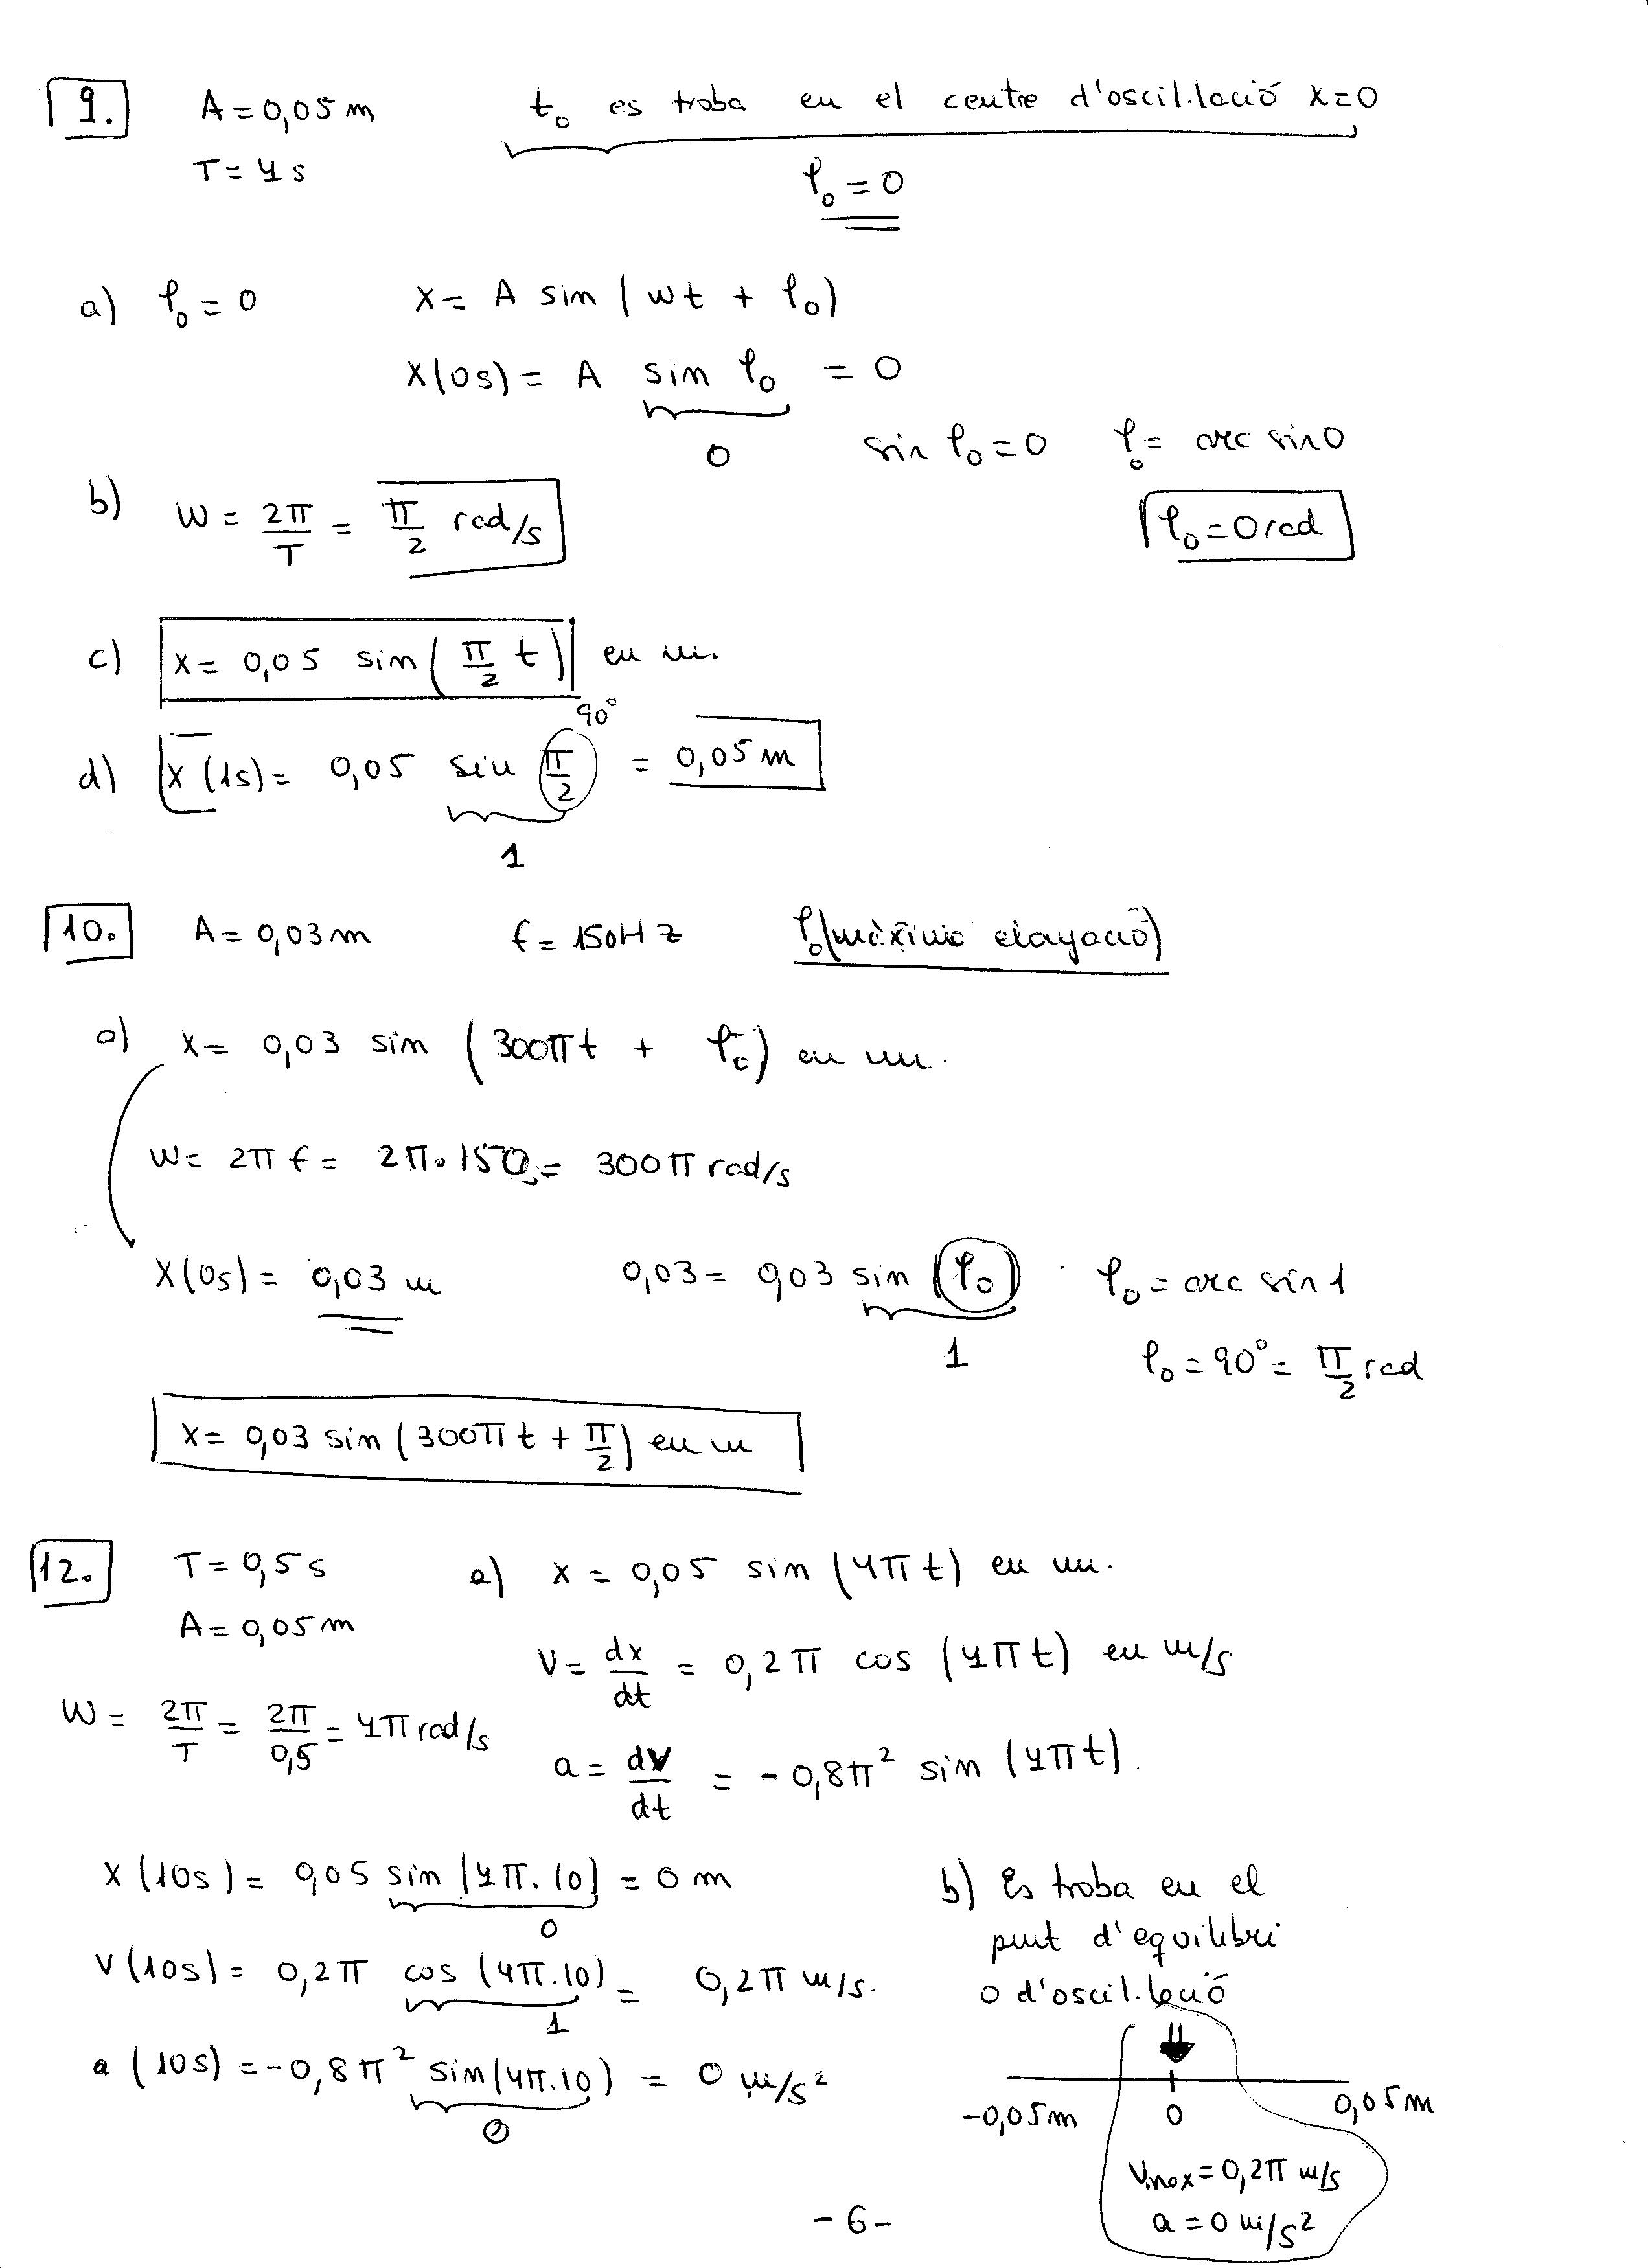 9. A = 0,05 m t₀ es troba en el centre d'oscil.lació x=0
T = 4 s φ₀ = 0
a) φ₀ = 0 x = A sin (wt + φ₀)
x(0s) = A sin φ₀ = 0
0 sin φ₀ = 0 φ₀ = arc sin 0
b) w = 2π/T = π/2 rad/s φ₀ = 0 rad
c) x = 0,05 sin (π/2 t) en m.
90°
d) x (1s) = 0,05 sin π/2 = 0,05 m
1
10. A = 0,03 m f = 150 Hz φ₀ (màxima elongació)
a) x = 0,03 sin (300πt + φ₀) en m.
w = 2π f = 2π · 150 = 300π rad/s
x(0s) = 0,03 m 0,03 = 0,03 sin (φ₀) φ₀ = arc sin 1
1 φ₀ = 90° = π/2 rad
x = 0,03 sin (300π t + π/2) en m
12. T = 0,5 s a) x = 0,05 sin (4π t) en m.
A = 0,05 m
v = dx/dt = 0,2π cos (4πt) en m/s
w = 2π/T = 2π/0,5 = 4π rad/s
a = dv/dt = - 0,8π² sin (4πt).
x (10s) = 0,05 sin (4π. 10) = 0 m
0
v (10s) = 0,2π cos (4π.10) = 0,2π m/s.
1
a (10s) = -0,8π² sin (4π.10) = 0 m/s²
0
b) Es troba en el
punt d'equilibri
o d'oscil.lació
-0,05 m 0 0,05 m
vmax = 0,2π m/s
a = 0 m/s²
- 6 -